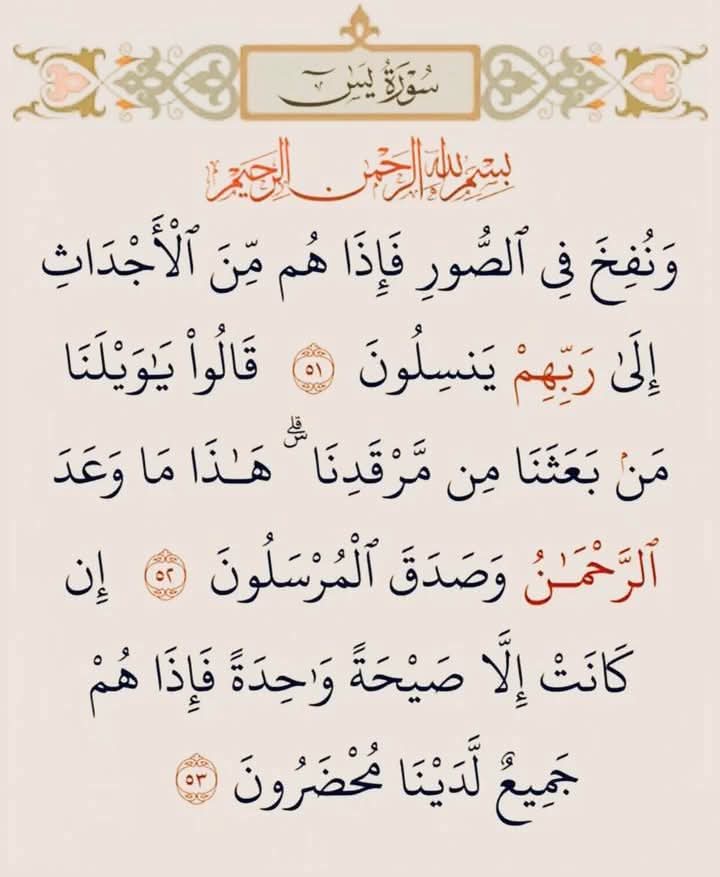 سُورَةُ يسٓ
بِسْمِ ٱللَّهِ ٱلرَّحْمَٰنِ ٱلرَّحِيمِ
وَنُفِخَ فِى ٱلصُّورِ فَإِذَا هُم مِّنَ ٱلْأَجْدَاثِ
إِلَىٰ رَبِّهِمْ يَنسِلُونَ ٥١ قَالُوا۟ يَـٰوَيْلَنَا
مَنۢ بَعَثَنَا مِن مَّرْقَدِنَا ۜ ۗ هَـٰذَا مَا وَعَدَ
ٱلرَّحْمَـٰنُ وَصَدَقَ ٱلْمُرْسَلُونَ ٥٢ إِن
كَانَتْ إِلَّا صَيْحَةً وَٰحِدَةً فَإِذَا هُمْ
جَمِيعٌ لَّدَيْنَا مُحْضَرُونَ ٥٣